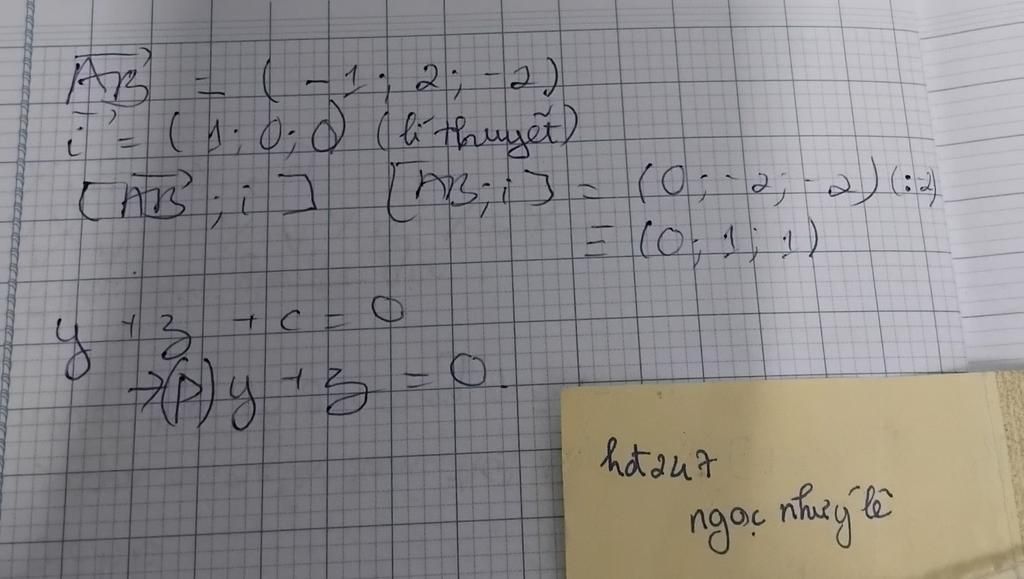 AB = (-1; 2; -2)
i = (1; 0; 0) (lí thuyết)
[AB; i] [AB; i] = (0; -2; -2) (:-2)
= (0; 1; 1)
y + z + c = 0
→(P) y + z = 0.
hdt247
ngọc như ý lê